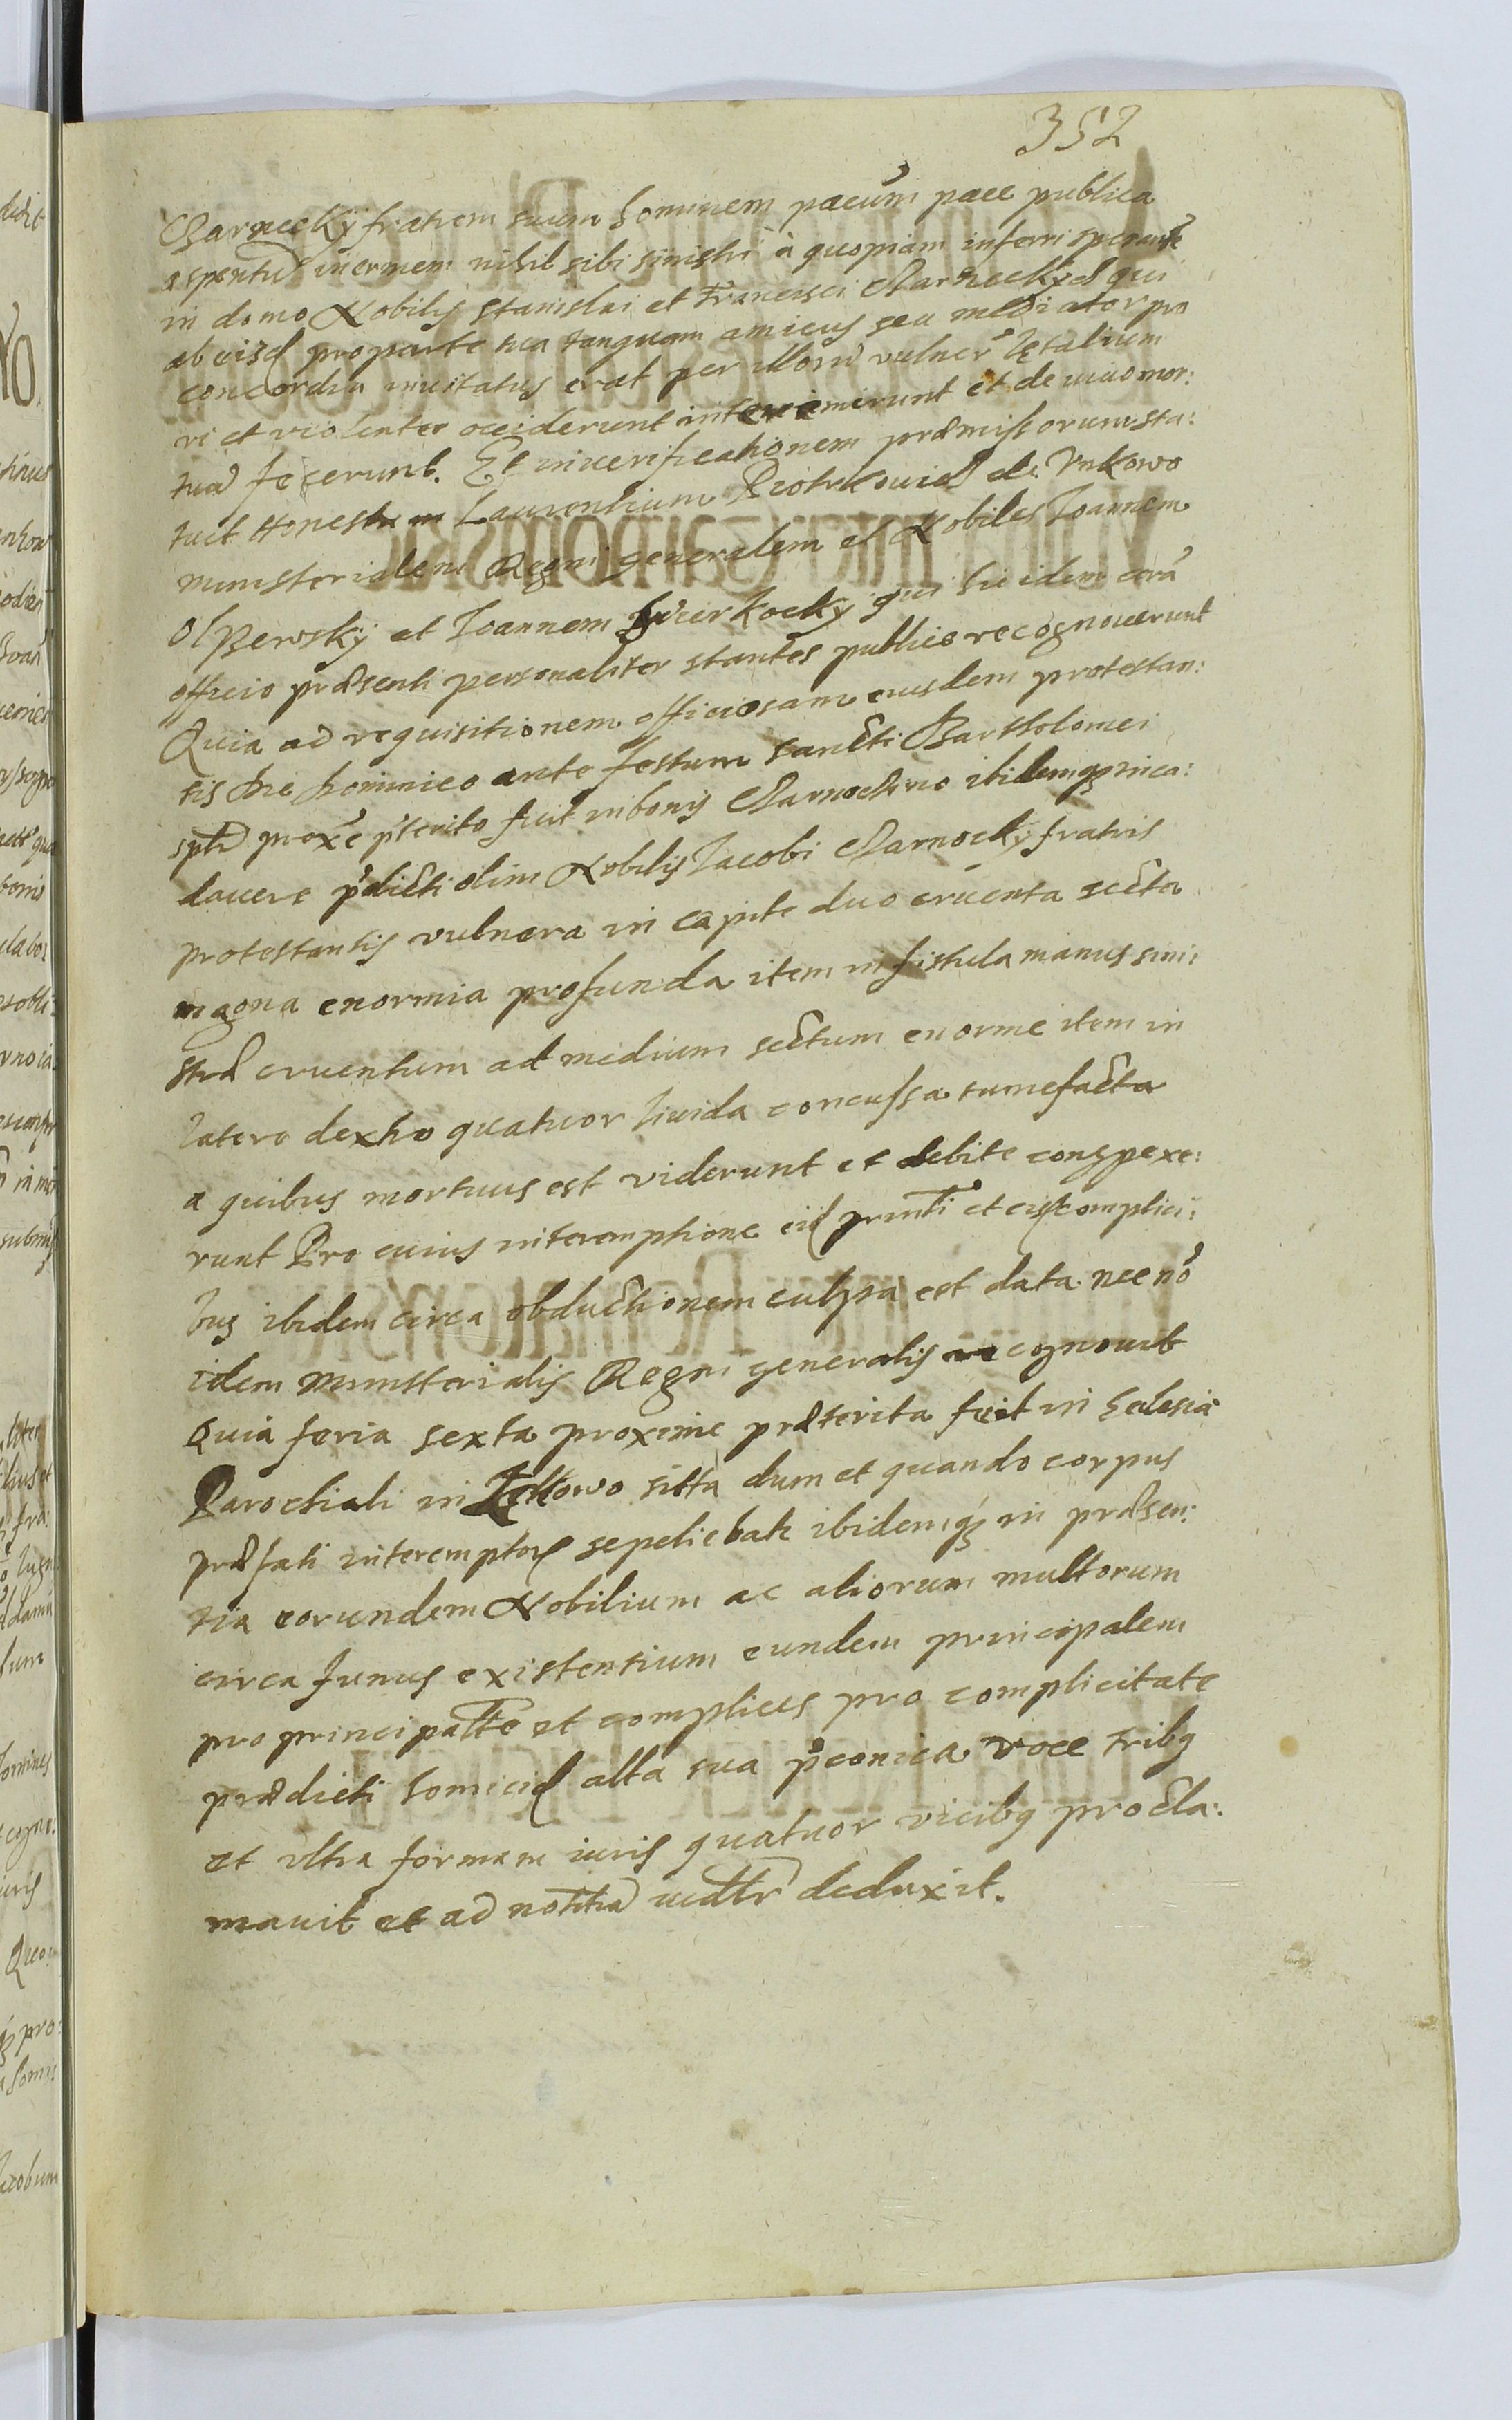 352
Czarneckÿ fratrem suum hominem pacem̃ pace publica
inermem nihil sibi sinistri à quopiam inferri sperantẽ
in domo Nobiliũ Stanislai et Francisci Czarneckych qui
ab eisd pro parte sua tanquam amicus seu mediator pro
concordia invitatus erat per illorũ vulnerũ letalium
vi et violenter occiderunt interemerunt et de vivo mor:
tuũ fecerunt. Et in verificationem præmissorum sta:
tuit Honestum Laurentium Piotrkowicz de Vnkowo
ministerialem Regni generalem et Nobiles Joannem
Olszewskÿ et Joannem qui hic idem corã
officio præsenti personaliter stantes publice recognoverunt
Quia ad requisitionem officiosam eiusdem protestan:
tis die Dominico ante festum Sancti Bartholomei
Aptĩ proxẽ pterito fuit in bonis Czarnockmo ibidemq; in ca:
davere pdicti olim Nobilis Jacobi Czarnockÿ fratris
protestantis vulnera in capite duo cruenta secta
magna enormia profunda item in fistula manus sini:
stræ cruentum ad medium sectum enorme item in
latere dextro quatuor livida concussa tumefacta
a quibus mortuus est viderunt et debite conspexe:
runt Pro cuius interemptione eid prinĩti et eius complici:
bus ibidem circa obductionem culpa est data nec nõ
idem ministerialis Regni generalis recognovit
Quia feria sexta proxime præterita fuit in Eclesia
Parochiali in sitta dum et quando corpus
præfati interempti sepeliebatr ibidemq; in præsen:
tia eorundem Nobilium ac aliorum multorum
circa funus existentium eundem principalem
pro principaltẽ et complices pro complicitate
prædicti homicid alta sua pconica voce tribq
et vltra formam iuris quatuor vicibq procla:
mavit et ad notitiã deduxit.